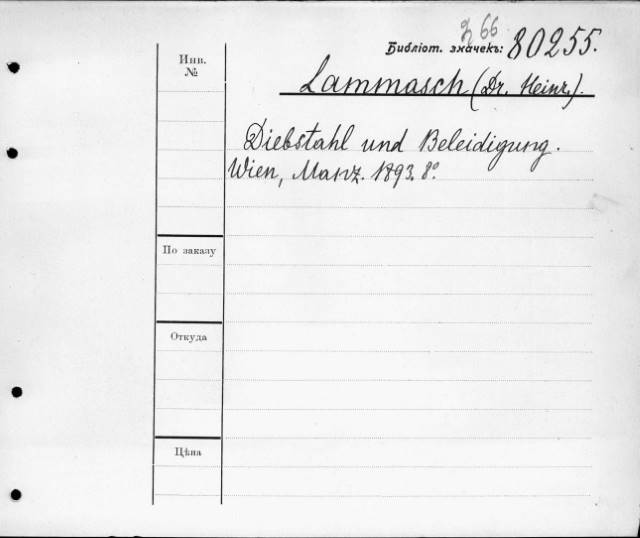 З 66
Библіот. значекъ: 80255.
Инв.
№
Lammasch (Dr. Heinr.).
Diebstahl und Beleidigung.
Wien, Manz. 1893. 8°.
По заказу
Откуда
Цѣна